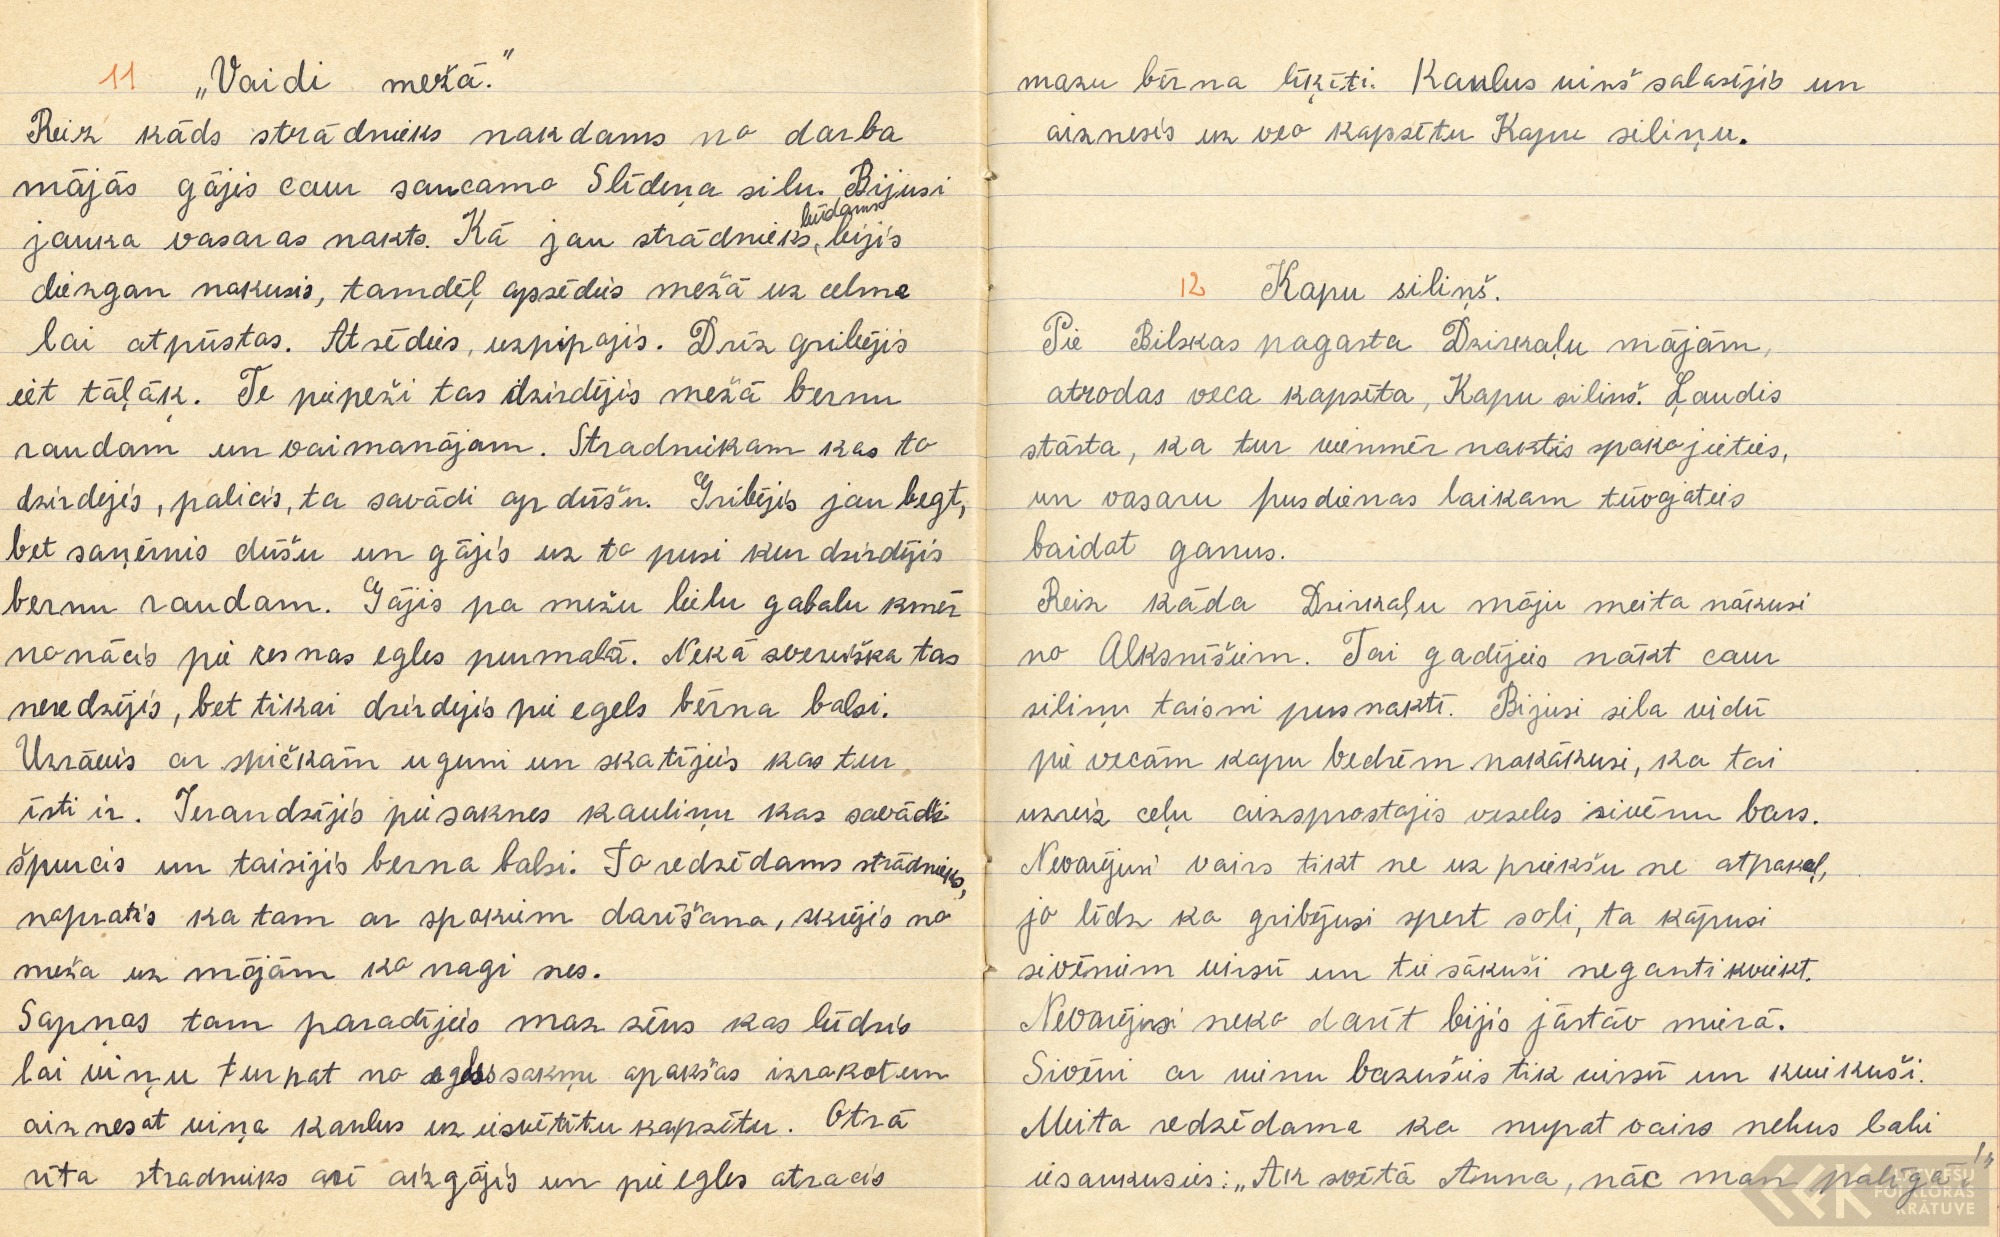 11 „Vaidi mežā."
Reiz kāds strādnieks nakdams no darba
mājās gājis caur saucamo Slīdeņa silu. Bijusi
jauka vasaras nakts. Kā jau strādnieks, būdams bijis
diezgan nokusis, tamdēļ apsēdies mežā uz celma
lai atpūstos. Atsēdies, uzpīpojis. Drīz gribējis
iet tāļāk. Te piepeži tas dzirdējis mežā bernu
raudam un vaimanājam. Stradniekam kas to
dzirdejis, palicis, tā savādi ap dūšu. Gribējis jau begt,
bet saņēmis dūšu un gājis uz to pusi kur dzirdējis
bernu raudam. Gājis pa mežu lielu gabalu kmēr
nonācis pie resnas egles purmalā. Nekā sverišķa tas
neredzējis, bet tikai dzirdejis pie egels bērna balsi.
Uzrāvis ar spičkām uguni un skatījies kas tur
īsti ir. Ieraudzījis pie saknes kauliņu kas savādi
špurcis un taisijis berna balsi. To redzēdams strādnieks,
nopratis ka tam ar spokiem darīšana, skrējis no
meža uz mājām ko nagi nes.
Sapņos tam paradījies maz zēns kas lūdzis
lai viņu turpat no egles sakņu apakšas izrakot un
aiznesat viņa kaulus uz iesvētītu kapsētu. Otrā
rīta stradnieks arī aizgājis un pie egles atracis
mazu bērna līķīti. Kaulus viņš salasījis un
aiznesis uz veo kapsētu Kapu siliņu.
12 Kapu siliņš.
Pie Bilskas pagasta Dzirkaļu mājām,
atrodas veca kapsēta, Kapu siliņš. Ļaudis
stāsta, ka tur vienmēr naktīs spokojieties,
un vasaru pusdienas laikam tūvojāties
baidot ganus.
Reiz kāda Dzirkaļu māju meita nākusi
no Alksnīšiem. Tai gadījies nākt caur
siliņu taisni pusnaktī. Bijusi sila vidū
pie vecām kapu bedrēm nokākusi, ka tai
uzreiz ceļu aizsprostojis veseles sivēnu bars.
Nevarējusi vairs tikt ne uz priekšu ne atpakaļ,
jo līdz ko gribējusi spert soli, tā kāpusi
sivēniem virsū un tie sākuši neganti kviekt.
Nevarējusi neko darīt bijis jāstāv mierā.
Sivēni ar vienu bazušies tik virsū un kviekuši.
Meita redzēdama ka nupat vairs nebus labi
iesaukusies: „Ak svētā Anna, nāc man palīgā!"
LATVIEŠU
FOLKLORAS
KRĀTUVE